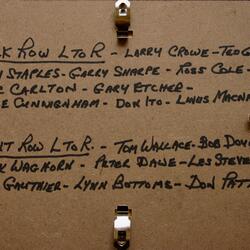 K ROW L TO R - LARRY CROWE - TED G
STAPLES - GARRY SHARPE - ROSS COLE -
CARLTON - GARY ETCHER -
CUNNINGHAM - DON ITO - LINUS MACNA
NT ROW L TO R. - TOM WALLACE - BOB DOW
K WAGHORN - PETER DAWE - LES STEVE
GAUTHIER - LYNN BOTTOMS - DON PATT